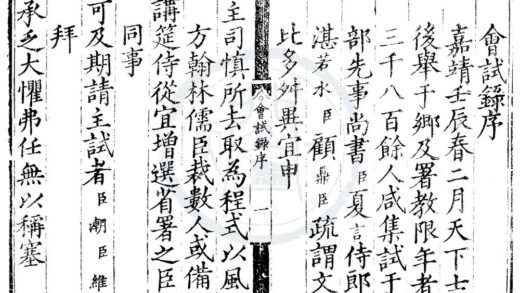 會試錄序
嘉靖壬辰春二月天下士
後舉于鄉及署教限年者
三千八百餘人咸集試于
部先事尚書臣夏言侍郎
湛若水臣顧鼎臣疏謂文
比多舛異宜申
會試錄序 一
主司慎所去取為程式以風
方翰林儒臣裁數人或備
講筵侍從宜增選省署之臣
同事
可及期請主試者臣潮臣維
拜
承乏大懼弗任無以稱塞